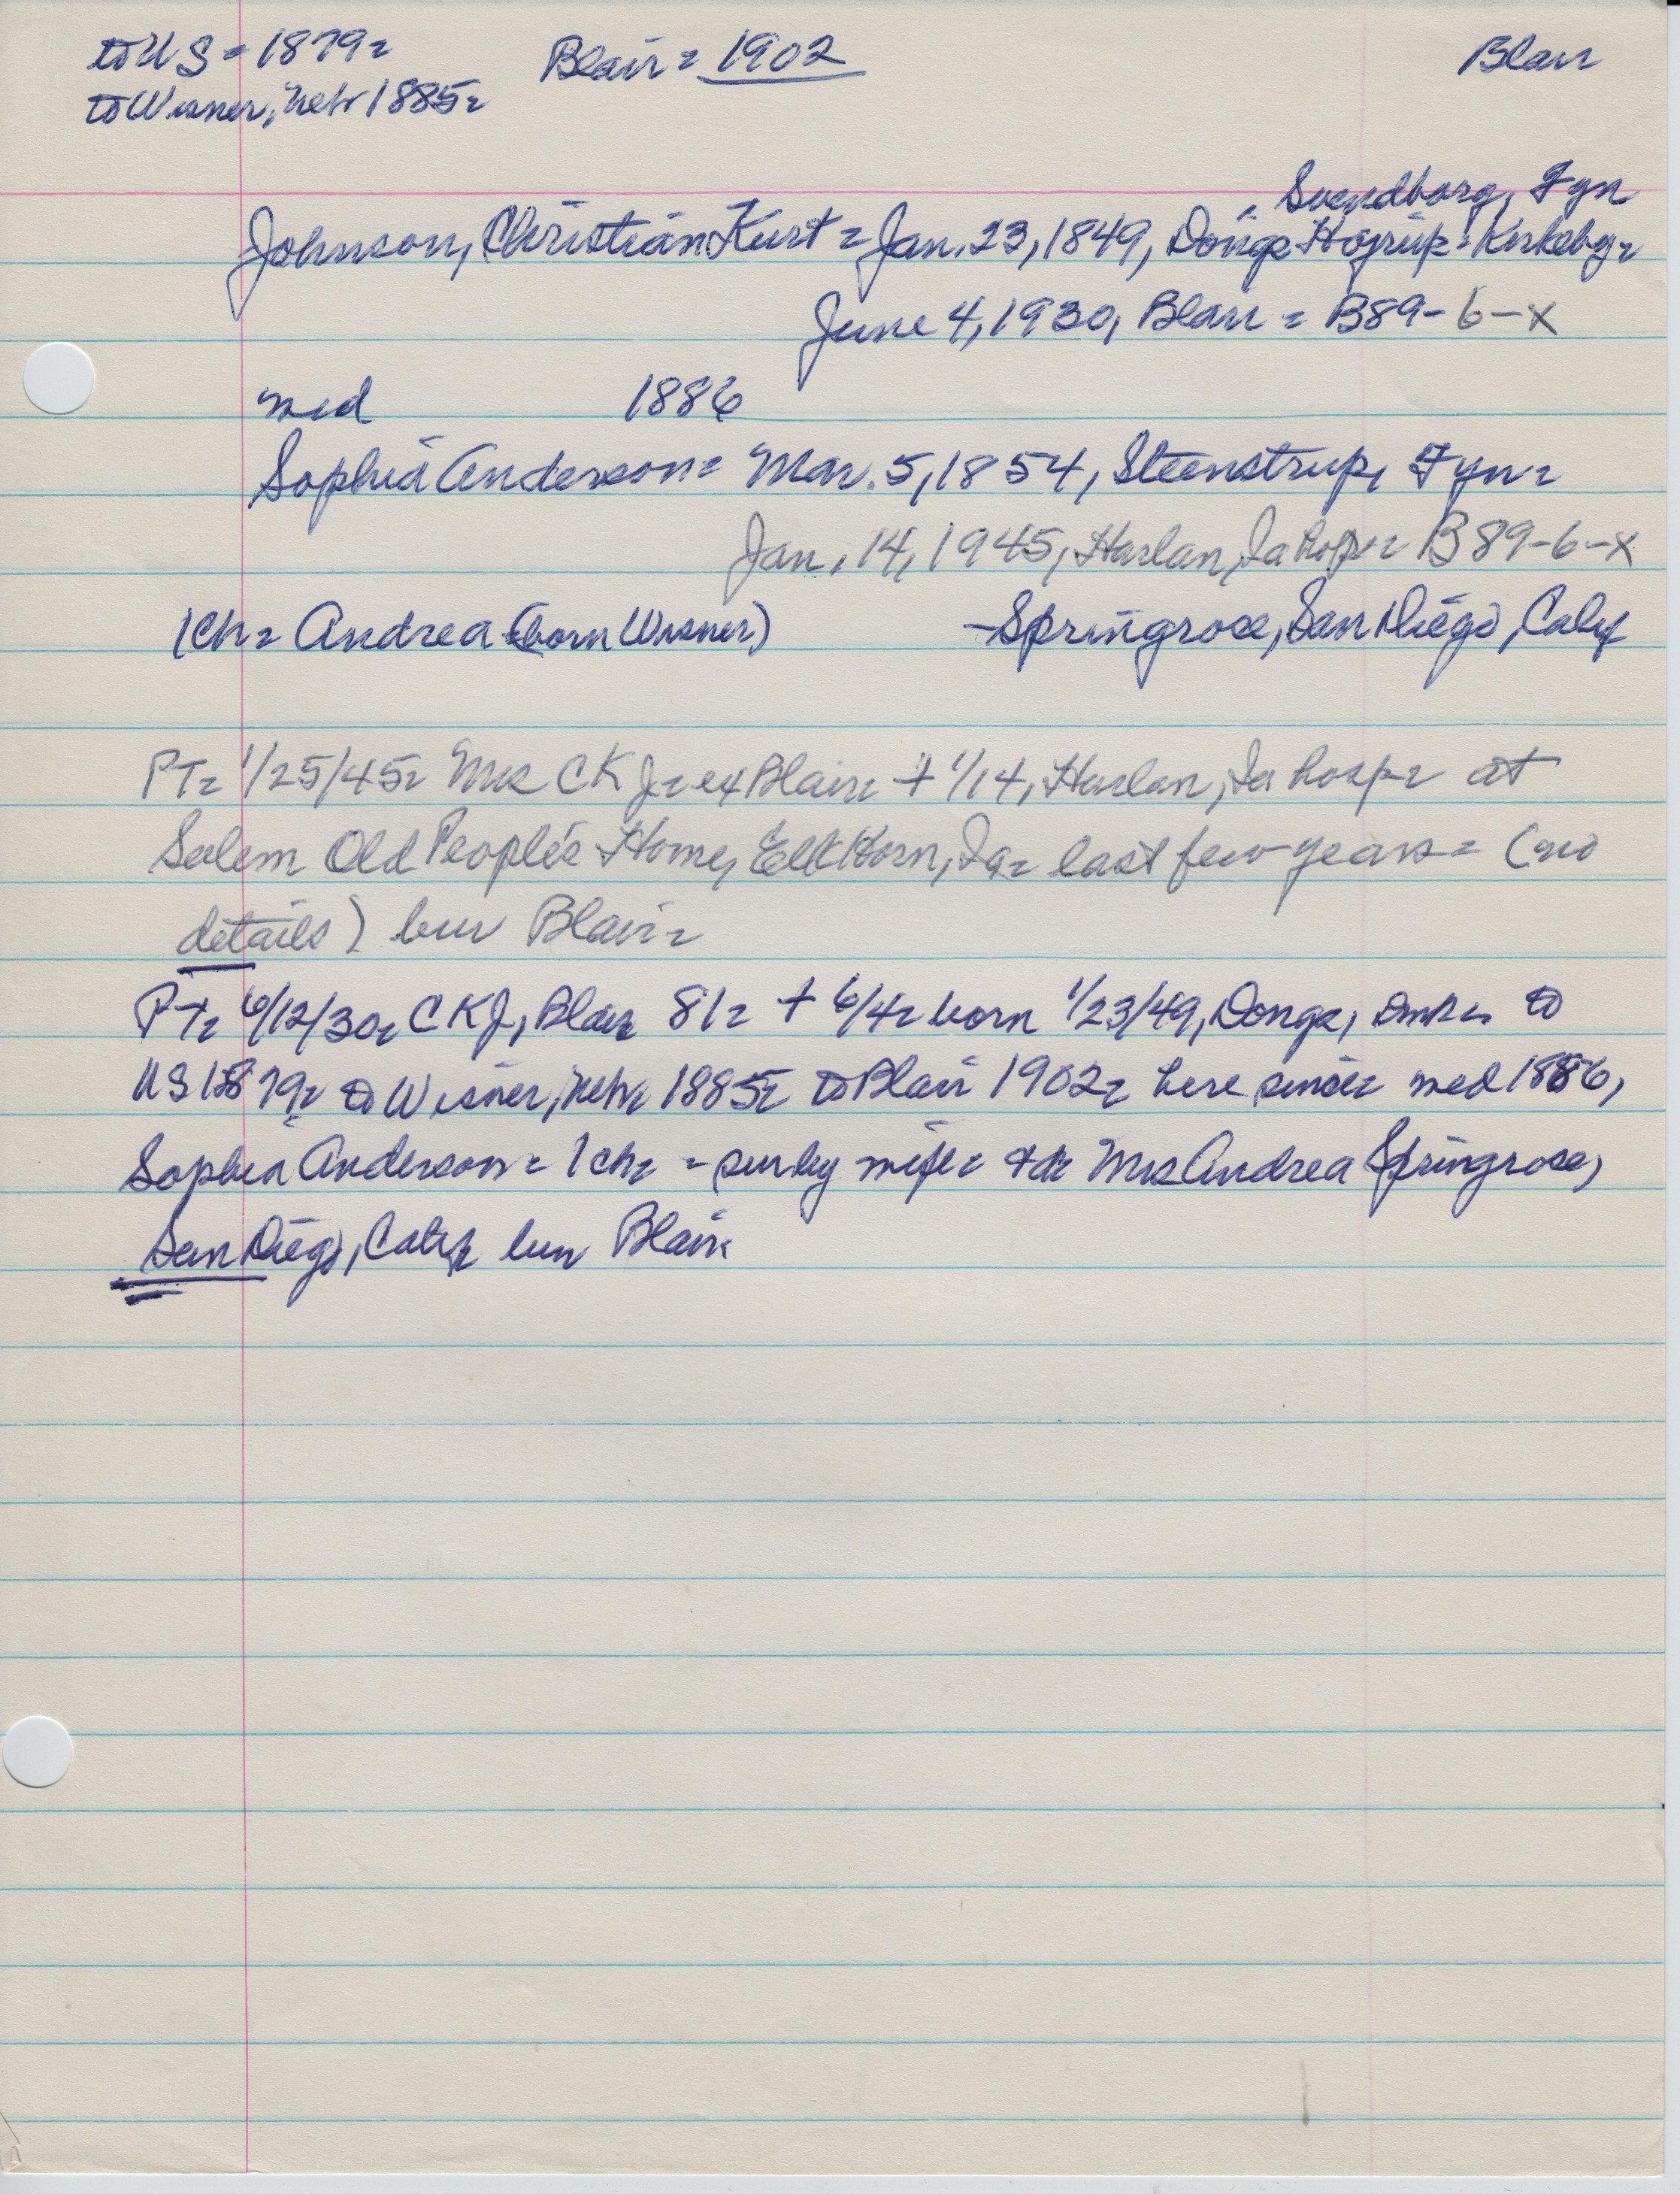 to US = 1879 =
Blair = 1902
Blair
to Wisner, Nebr 1885 =
Svendborg, Fyn
Johnson, Christian Kurt = Jan. 23, 1849, Donge Højrup = Kirkeby =
June 4, 1930, Blair = B89-6-x
med 1886
Sophia Anderson = Mar. 5, 1854, Steenstrup, Fyn =
Jan. 14, 1945, Harlan, Ia hosp = B89-6-x
1 ch = Andrea (born Wisner) - Springrose, San Diego, Calif
PT = 1/25/45 = Mrs CKJ = ex Blair = + 1/14, Harlan, Ia hosp = at
Salem Old People's Home, Elk Horn, Ia = last few years = (no
details) bur Blair =
PT = 6/12/30 = CKJ, Blair 81 = + 6/4 = born 1/23/49, Donge, Dmk = to
US 1879 = to Wisner, Nebr = 1885 = to Blair 1902 = here since = med 1886,
Sophia Anderson = 1 ch = - sur by wife = + da Mrs Andrea Springrose,
San Diego, Calif = bur Blair